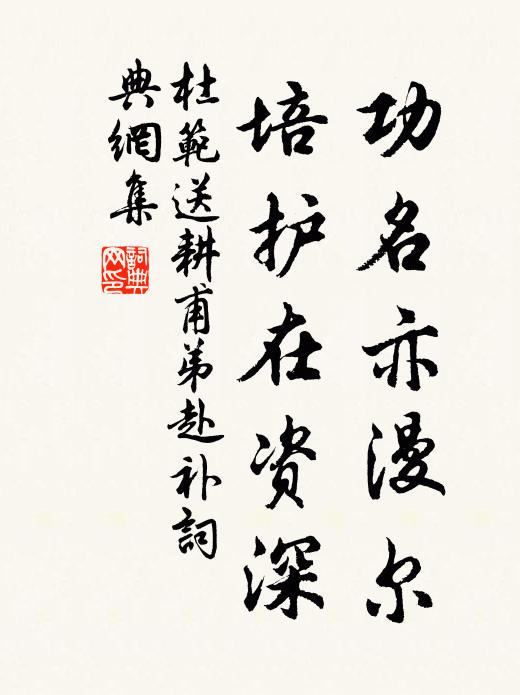 功名亦漫尔
培护在资深
杜範送耕甫弟赴补詞
典網集
詞典
网印